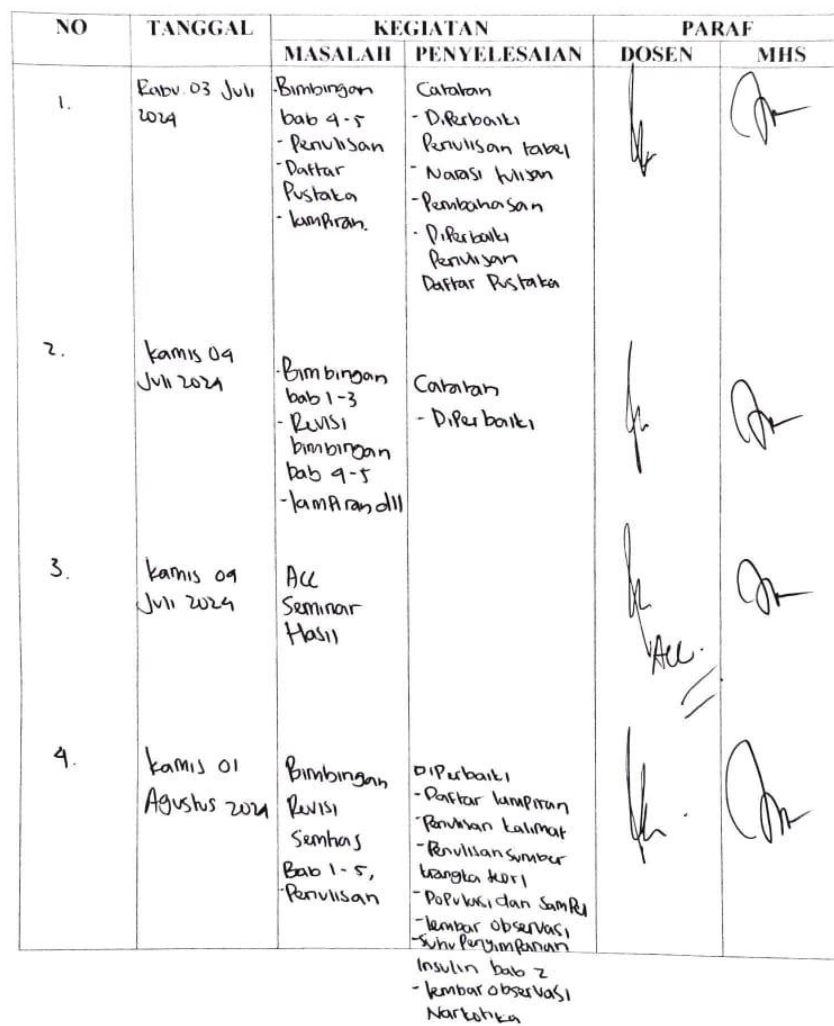 NO TANGGAL KEGIATAN PARAF
MASALAH PENYELESAIAN DOSEN MHS
1.
Rabu. 03 Juli
2024
- Bimbingan
bab 4-5
- Penulisan
- Daftar
Pustaka
- lampiran.
Catatan
- Diperbaiki
Penulisan tabel
- Narasi tulisan
- Pembahasan
- Diperbaiki
Penulisan
Daftar Pustaka
2.
kamis 04
Juli 2024
- Bimbingan
bab 1-3
- Revisi
bimbingan
bab 4-5
- lampiran dll
Catatan
- Diperbaiki
3.
kamis 04
Juli 2024
Acc
Seminar
Hasil
Acc.
4.
kamis 01
Agustus 2024
Bimbingan
Revisi
Semhas
Bab 1-5,
Penulisan
Diperbaiki
- Daftar lampiran
- Penulisan kalimat
- Penulisan sumber
krangka teori
- Populasi dan Sampel
- lembar observasi
- Suhu Penyimpanan
Insulin bab 2
- lembar observasi
Narkotika